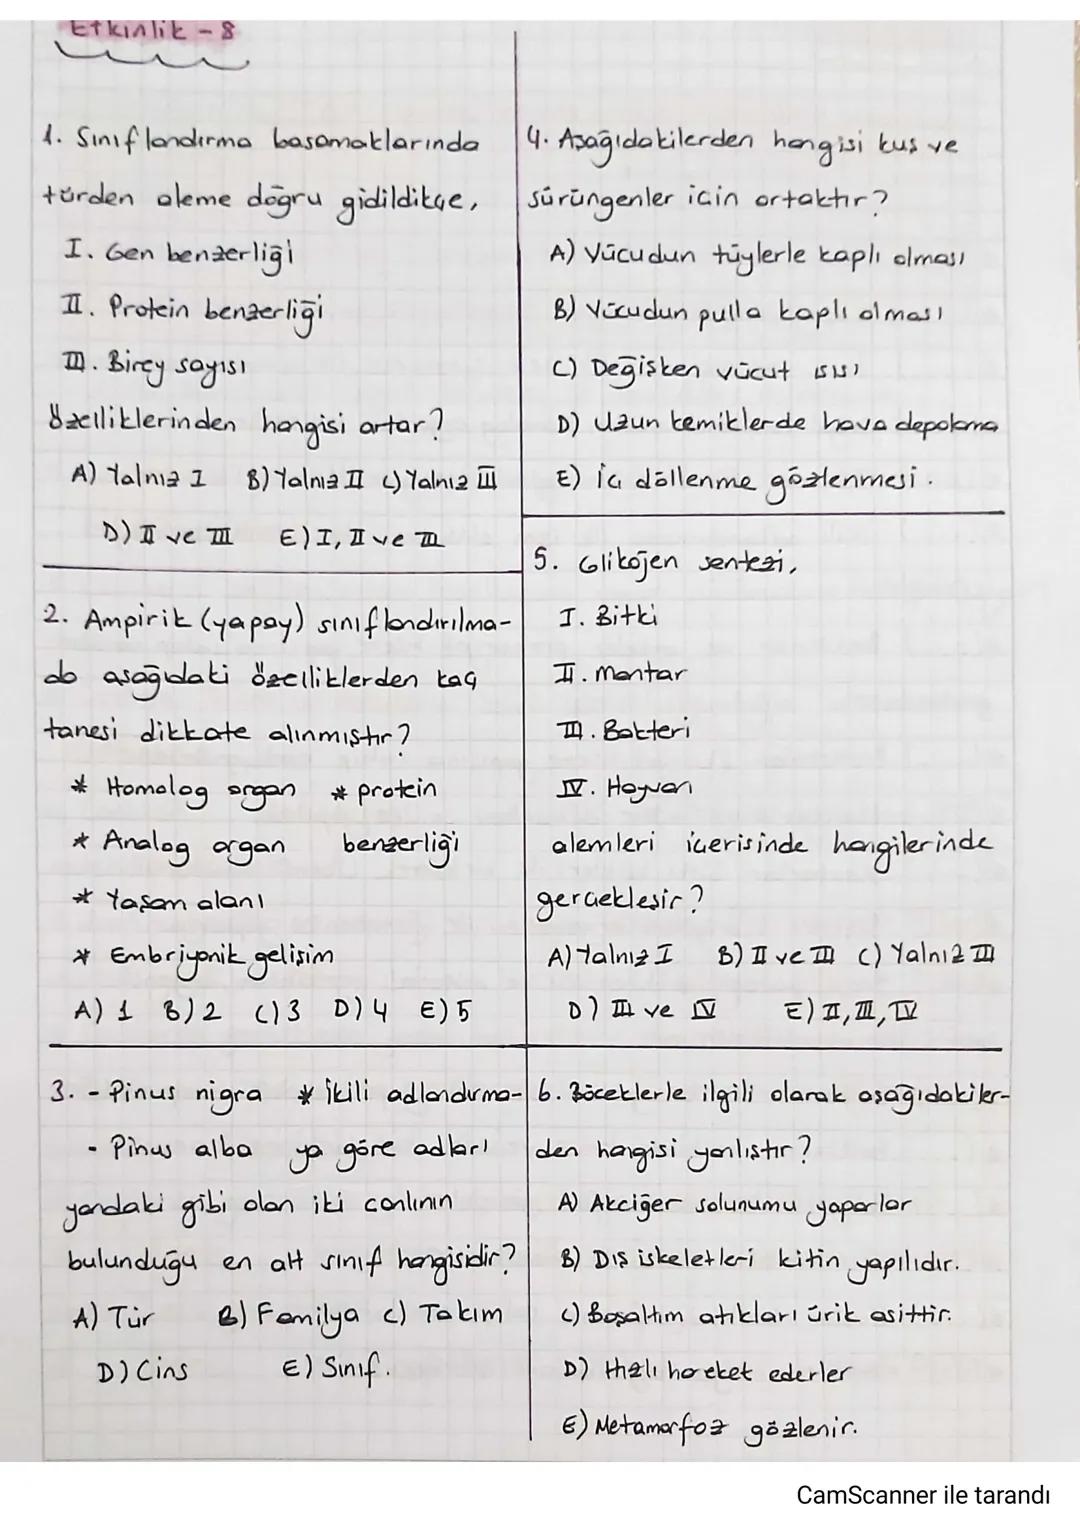 Etkinlik - 8
1. Sınıflandırma basamaklarında
türden aleme doğru gidildikçe,
I. Gen benzerliği
II. Protein benzerliği
III. Birey sayısı
özelliklerinden hangisi artar?
A) Yalnız I B) Yalnız II C) Yalnız III
D) II ve III E) I, II ve III
2. Ampirik (yapay) sınıflandırılma-
da aşağıdaki özelliklerden kaç
tanesi dikkate alınmıştır?
* Homolog organ * protein
* Analog organ benzerliği
* Yaşam alanı
* Embriyonik gelişim
A) 1 B) 2 C) 3 D) 4 E) 5
3. - Pinus nigra * İkili adlandırma-
- Pinus alba ya göre adları
yandaki gibi olan iki canlının
bulunduğu en alt sınıf hangisidir?
A) Tür B) Familya C) Takım
D) Cins E) Sınıf.
4. Aşağıdakilerden hangisi kuş ve
sürüngenler için ortaktır?
A) Vücudun tüylerle kaplı olması
B) Vücudun pulla kaplı olması
C) Değişken vücut ısısı
D) Uzun kemiklerde hava depolama
E) İç döllenme gözlenmesi.
5. Glikojen sentezi,
I. Bitki
II. Mantar
III. Bakteri
IV. Hayvan
alemleri içerisinde hangilerinde
gerçekleşir?
A) Yalnız I B) II ve III C) Yalnız III
D) III ve IV E) II, III, IV
6. Böceklerle ilgili olarak aşağıdakiler-
den hangisi yanlıştır?
A) Akciğer solunumu yaparlar
B) Dış iskeletleri kitin yapılıdır.
C) Boşaltım atıkları ürik asittir.
D) Hızlı hareket ederler
E) Metamorfoz gözlenir.
CamScanner ile tarandı